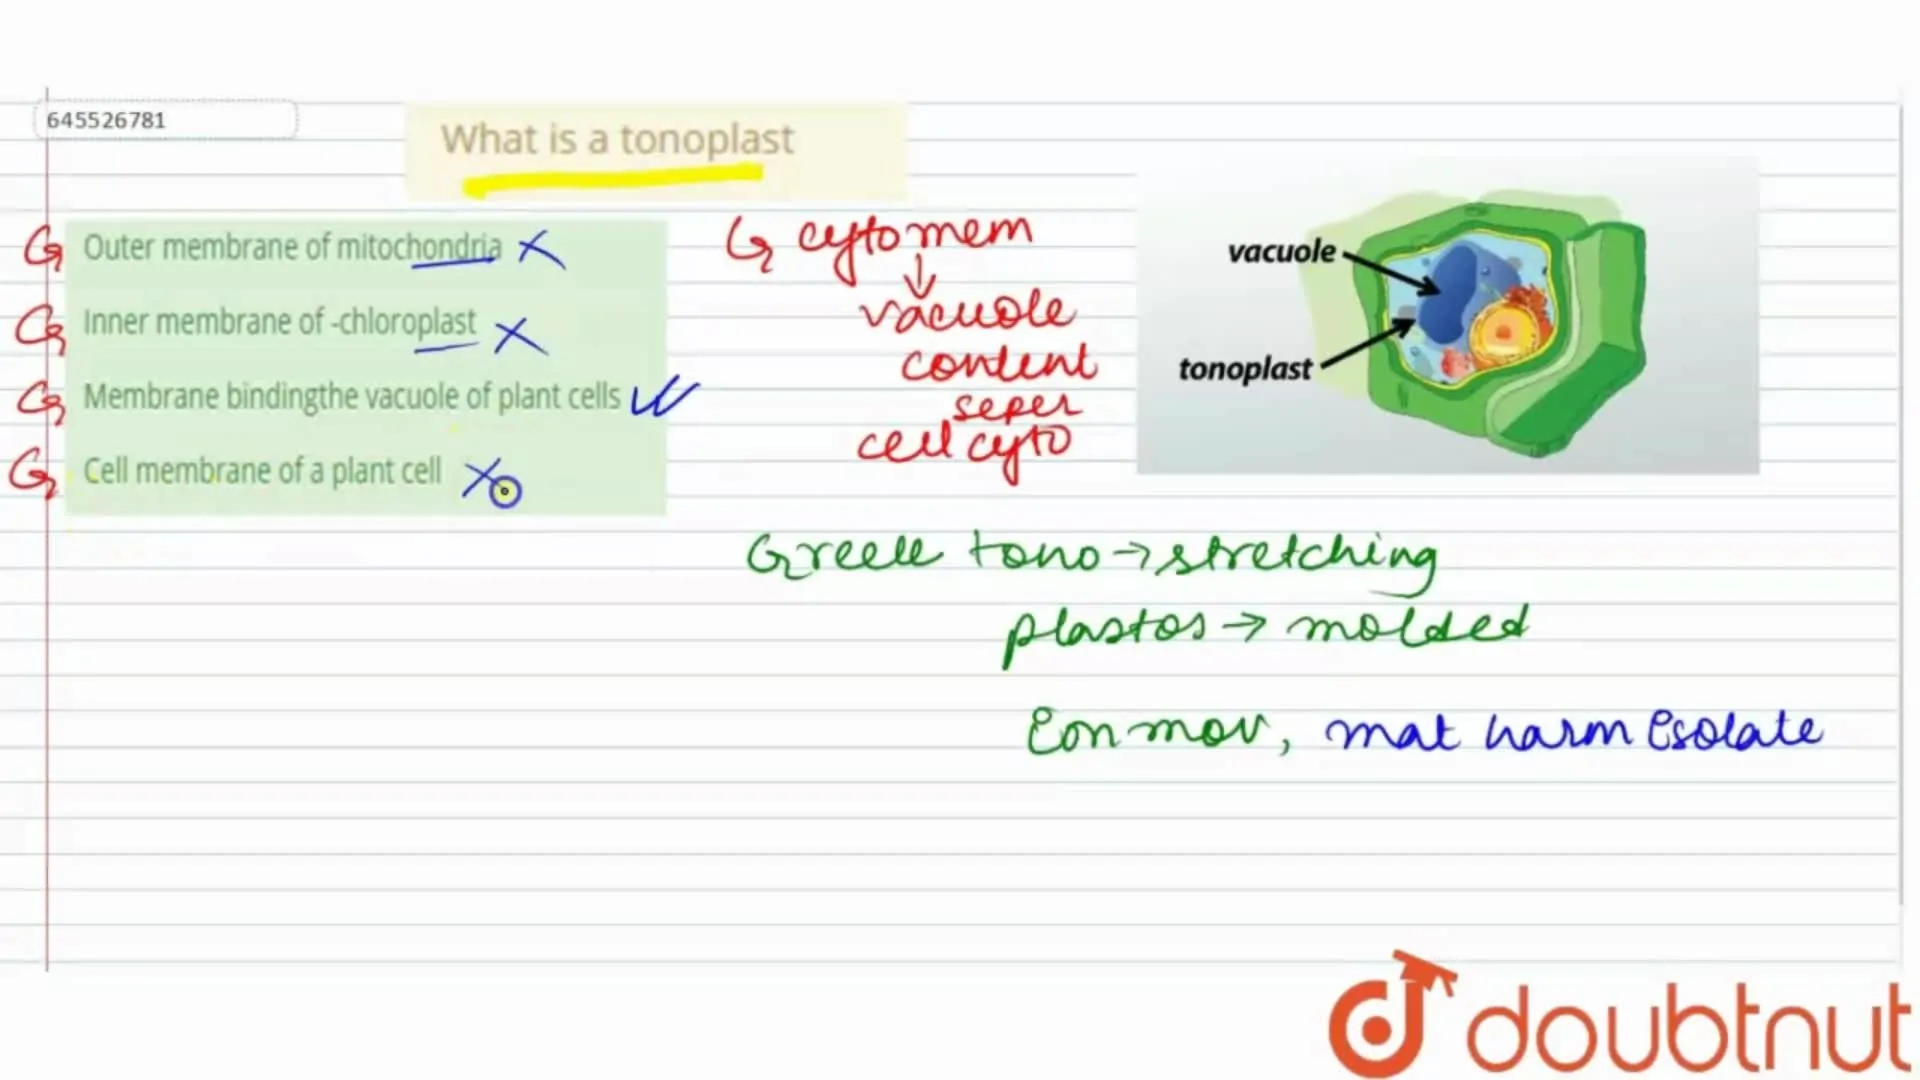 645526781
What is a tonoplast
Outer membrane of mitochondria
Inner membrane of -chloroplast
Membrane bindingthe vacuole of plant cells
Cell membrane of a plant cell
cytomem
vacuole
content
seper
cell cyto
vacuole
tonoplast
Greek tono → stretching
plastos → molded
Eon mov, mat harm Esolate
doubtnut